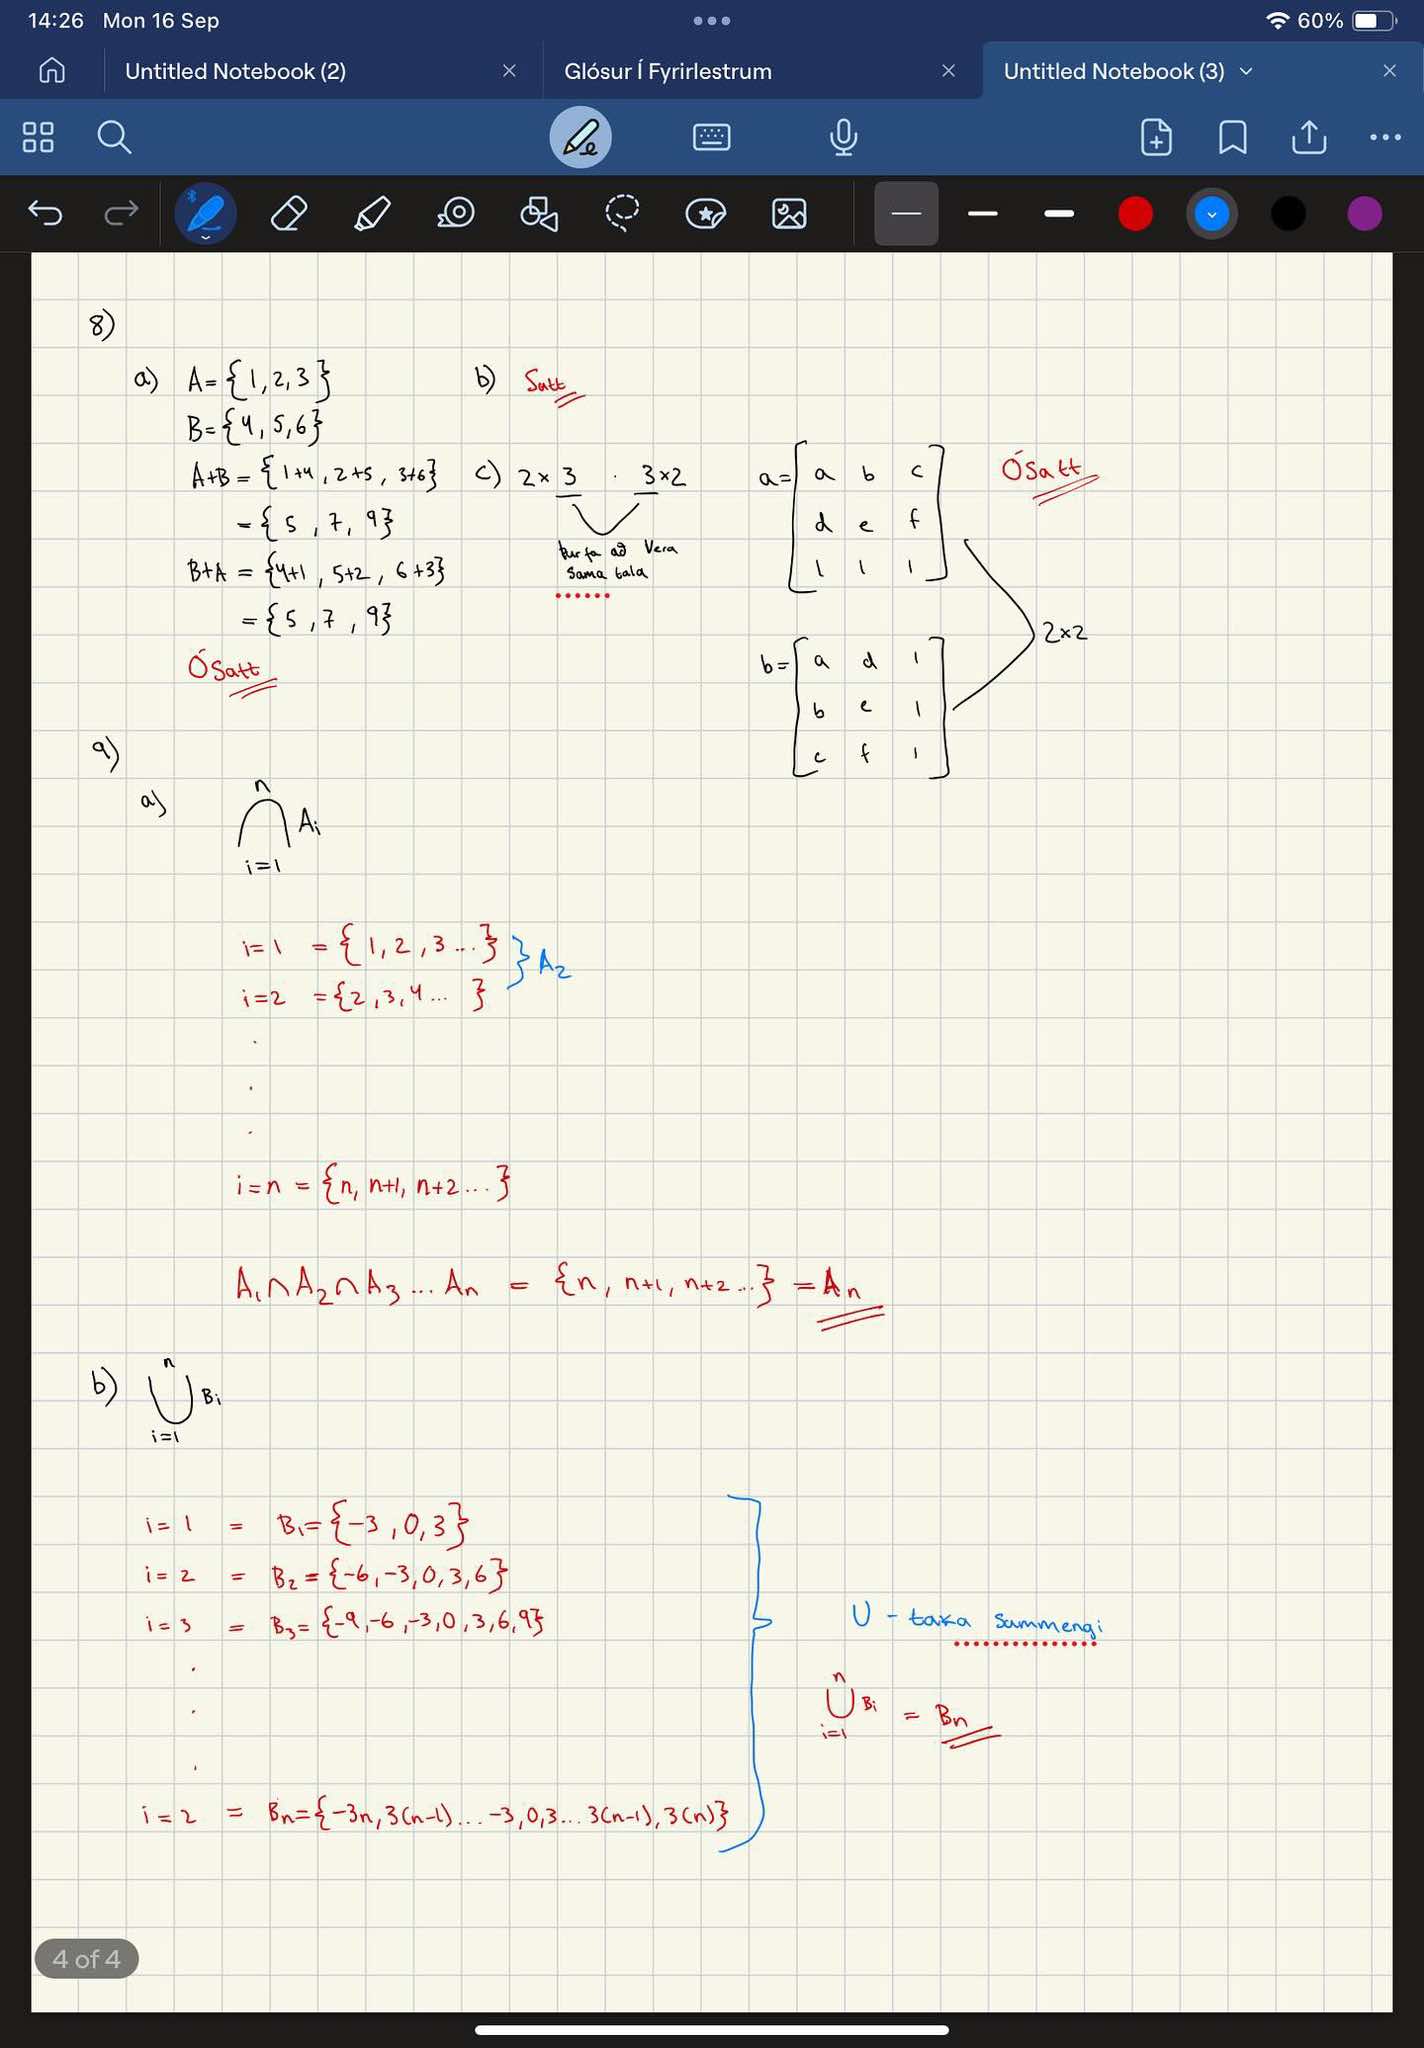 14:26 Mon 16 Sep
60%
Untitled Notebook (2)
Glósur Í Fyrirlestrum
Untitled Notebook (3)
8)
a) A = {1, 2, 3}
B = {4, 5, 6}
A+B = {1+4, 2+5, 3+6}
= {5, 7, 9}
B+A = {4+1, 5+2, 6+3}
= {5, 7, 9}
Ósatt
b) Satt
c) 2×3 · 3×2
þurfa að vera
sama tala
a = [a b c
d e f
1 1 1]
Ósatt
b = [a d 1
b e 1
c f 1]
2×2
9)
a)
n
⋂ Ai
i=1
i=1 = {1, 2, 3 ...}
i=2 = {2, 3, 4 ... }
} A2
.
.
.
i=n = {n, n+1, n+2 ...}
A1 ∩ A2 ∩ A3 ... An = {n, n+1, n+2 ...} = An
b)
n
⋃ Bi
i=1
i=1 = B1 = {-3, 0, 3}
i=2 = B2 = {-6, -3, 0, 3, 6}
i=3 = B3 = {-9, -6, -3, 0, 3, 6, 9}
.
.
.
i=2 = Bn = {-3n, 3(n-1) ... -3, 0, 3 ... 3(n-1), 3(n)}
U - taka sammengi
n
⋃ Bi = Bn
i=1
4 of 4